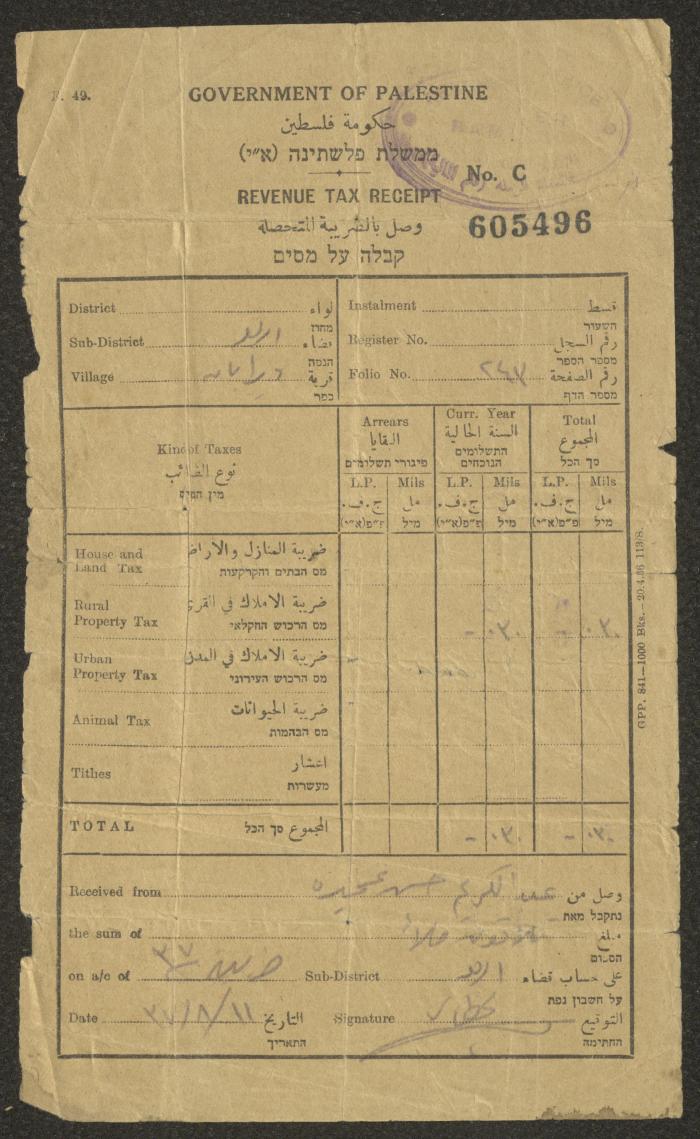 F. 49.
GOVERNMENT OF PALESTINE
حكومة فلسطين
ממשלת פלשתינה (א״י)
No. C
REVENUE TAX RECEIPT
605496
وصل بالضريبة المتحصلة
קבלה על מסים
District لواء
מחוז
Sub-District قضاء
הנפה
Village قرية
כפר
Instalment قسط
השעור
Register No. رقم السجل
מספר הספר
Folio No. ٢٤٧ رقم الصفحة
מספר הדף
Kind of Taxes
نوع الضرائب
מין המס
Arrears
البقايا
פיגורי תשלומים
Curr. Year
السنة الحالية
התשלומים הנוכחים
Total
المجموع
סך הכל
L.P. Mils L.P. Mils L.P. Mils
ج.ف. مل ج.ف. مل ج.ف. مل
פ״פ(א״י) מיל פ״פ(א״י) מיל פ״פ(א״י) מיל
House and Land Tax
ضريبة المنازل والاراض
מס הבתים והקרקעות
Rural Property Tax
ضريبة الاملاك في القرى
מס הרכוש החקלאי
- ٠٣٠ - ٠٣٠
Urban Property Tax
ضريبة الاملاك في المدن
מס הרכוש העירוני
Animal Tax
ضريبة الحيوانات
מס הבהמות
Tithes
اعشار
מעשרות
TOTAL المجموع סך הכל - ٠٣٠ - ٠٣٠
Received from عبد الكريم حسن وصل من
נתקבל מאת
the sum of مبلغ
הסכום
on a/c of ٣٧ Sub-District على حساب قضاء
על חשבון נפת
Date ٣٧/٨/١١ التاريخ
התאריך
Signature التوقيع
החתימה
GPP. 841—1000 Bks.—20.4.36 113/8.